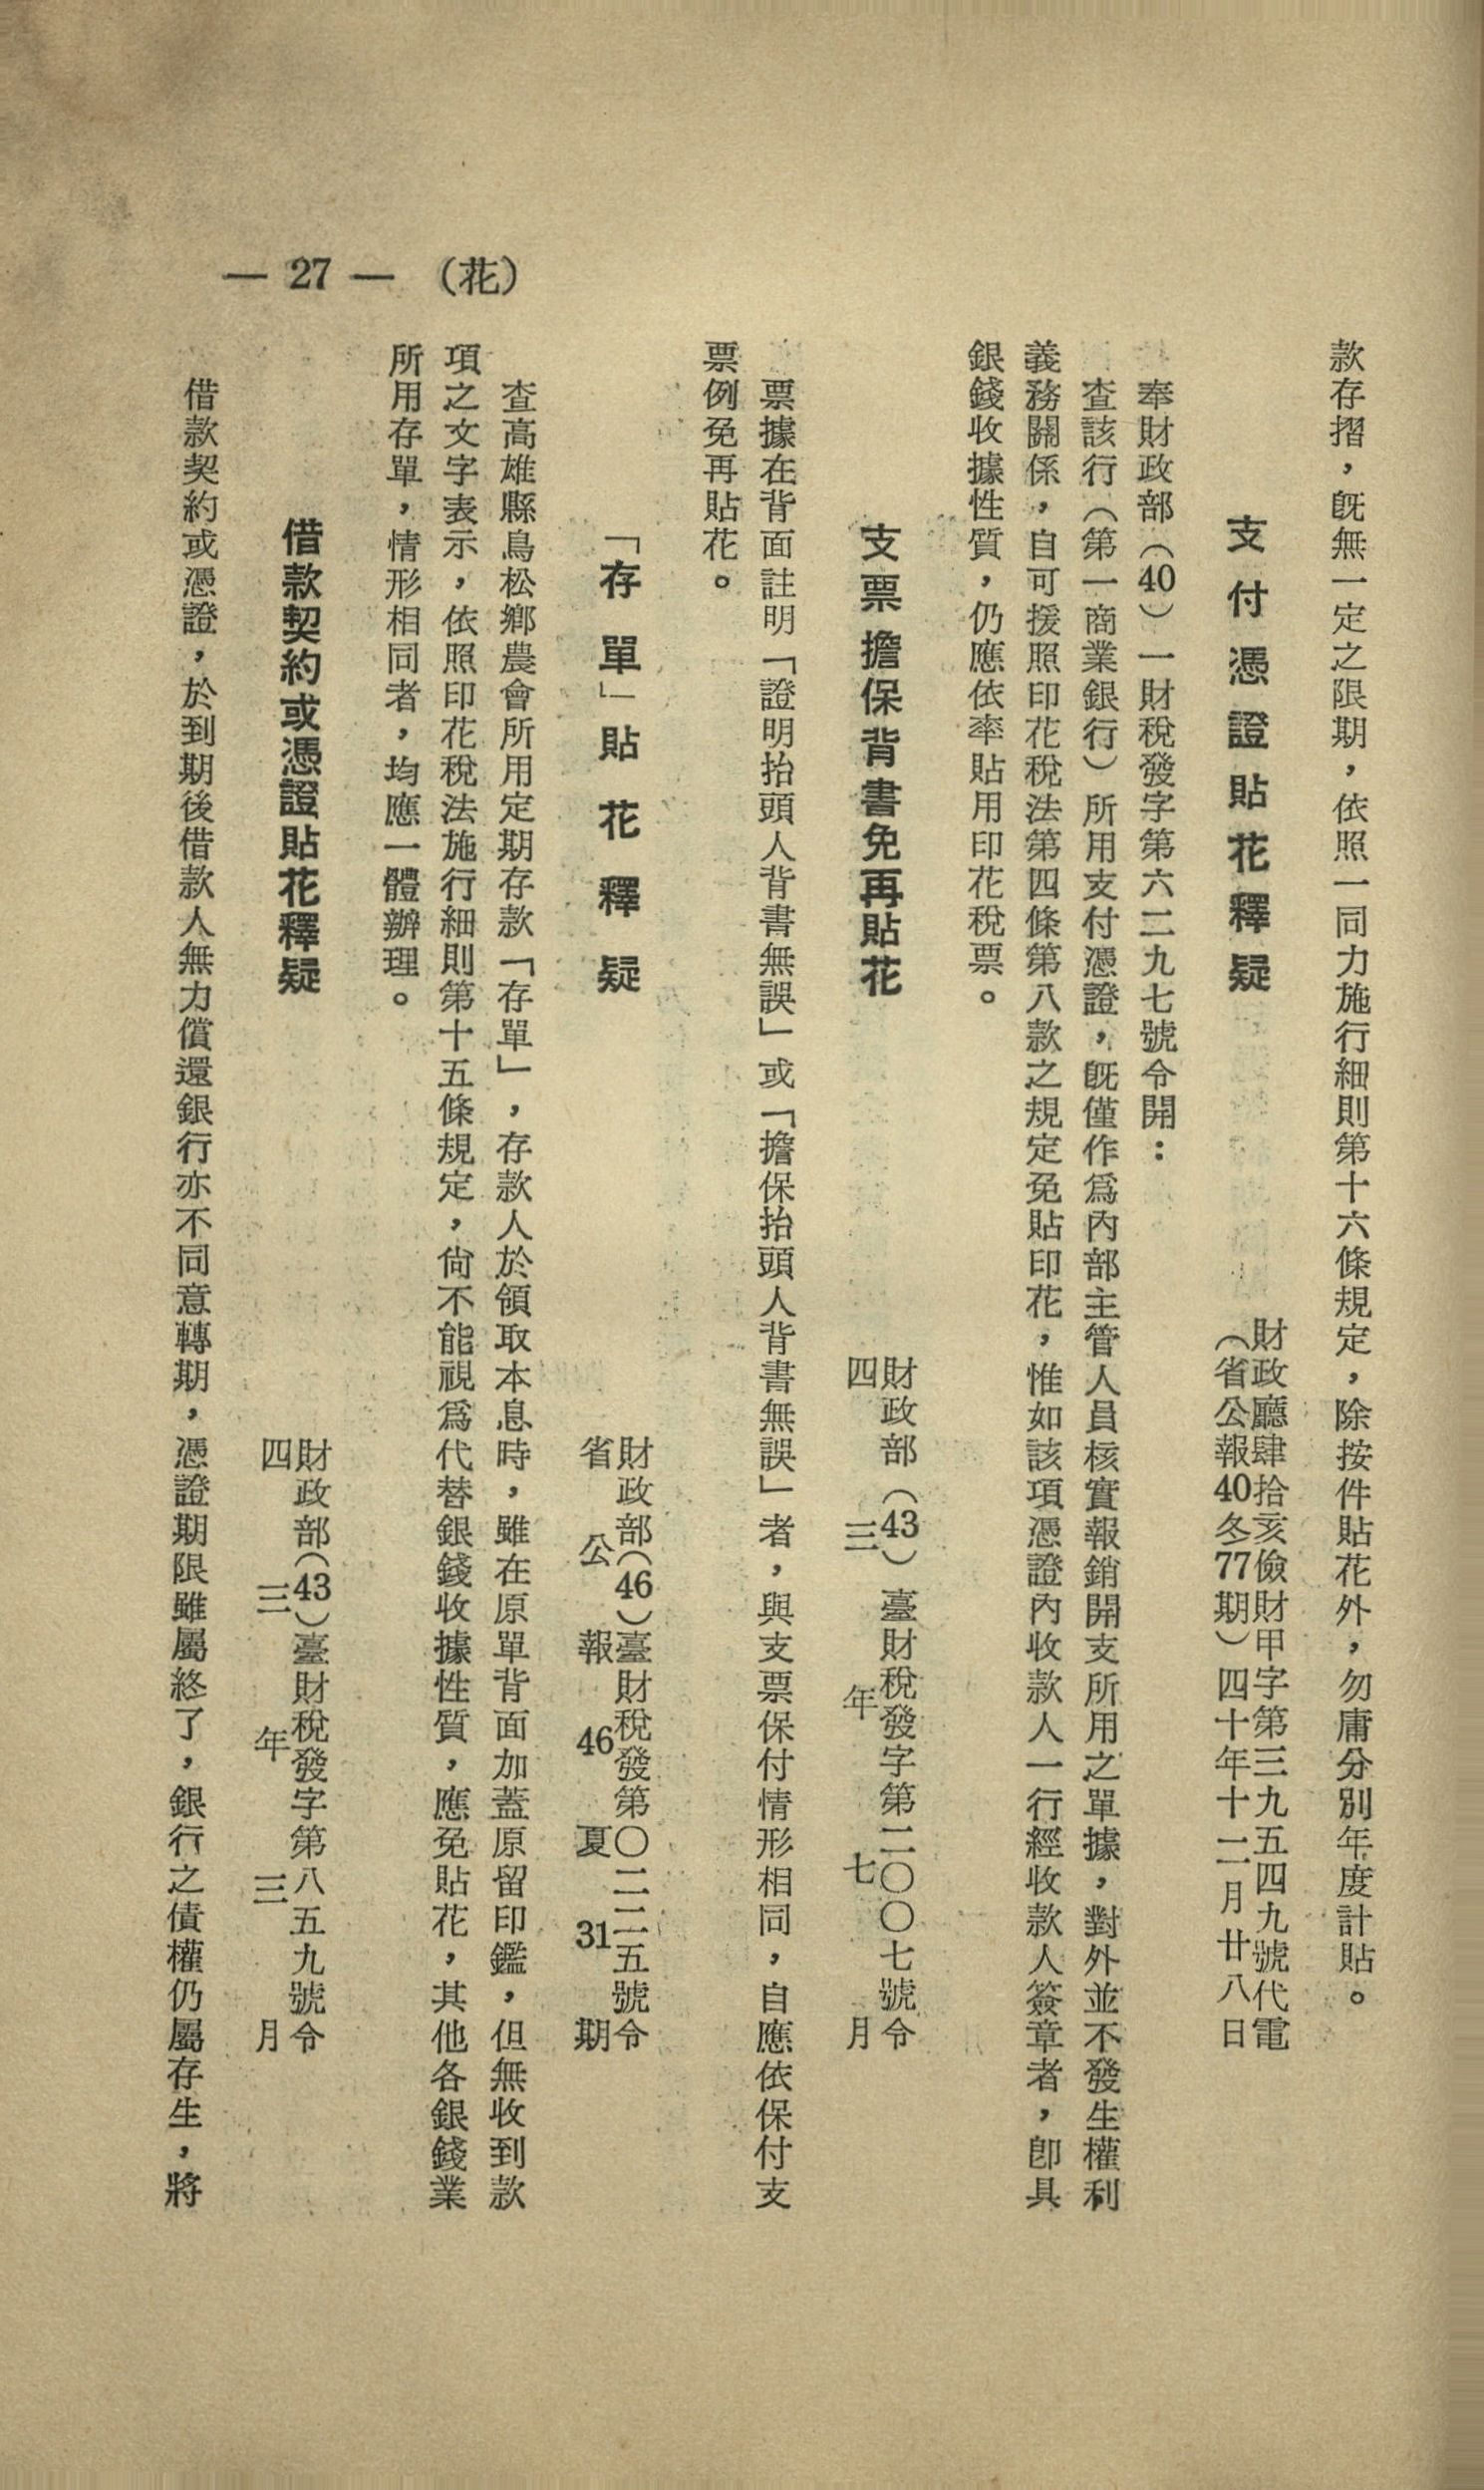 款存摺，既無一定之限期，依照一同力施行細則第十六條規定，除按件貼花外，勿庸分別年度計貼。
支付憑證貼花釋疑
財政廳肆拾亥儉財甲字第三九五四九號代電
（省公報40冬77期）四十年十二月廿八日
奉財政部（40）一財稅發字第六二九七號令開：
查該行（第一商業銀行）所用支付憑證，既僅作爲內部主管人員核實報銷開支所用之單據，對外並不發生權利
義務關係，自可援照印花稅法第四條第八款之規定免貼印花，惟如該項憑證內收款人一行經收款人簽章者，卽具
銀錢收據性質，仍應依率貼用印花稅票。
支票擔保背書免再貼花
財政部（43）臺財稅發字第二〇〇七號令
四三年七月
票據在背面註明「證明抬頭人背書無誤」或「擔保抬頭人背書無誤」者，與支票保付情形相同，自應依保付支
票例免再貼花。
「存單」貼花釋疑
財政部（46）臺財稅發第〇二二五號令
省公報46夏31期
查高雄縣鳥松鄉農會所用定期存款「存單」，存款人於領取本息時，雖在原單背面加蓋原留印鑑，但無收到款
項之文字表示，依照印花稅法施行細則第十五條規定，尙不能視爲代替銀錢收據性質，應免貼花，其他各銀錢業
所用存單，情形相同者，均應一體辦理。
借款契約或憑證貼花釋疑
財政部（43）臺財稅發字第八五九號令
四三年三月
借款契約或憑證，於到期後借款人無力償還銀行亦不同意轉期，憑證期限雖屬終了，銀行之債權仍屬存生，將
— 27 — （花）